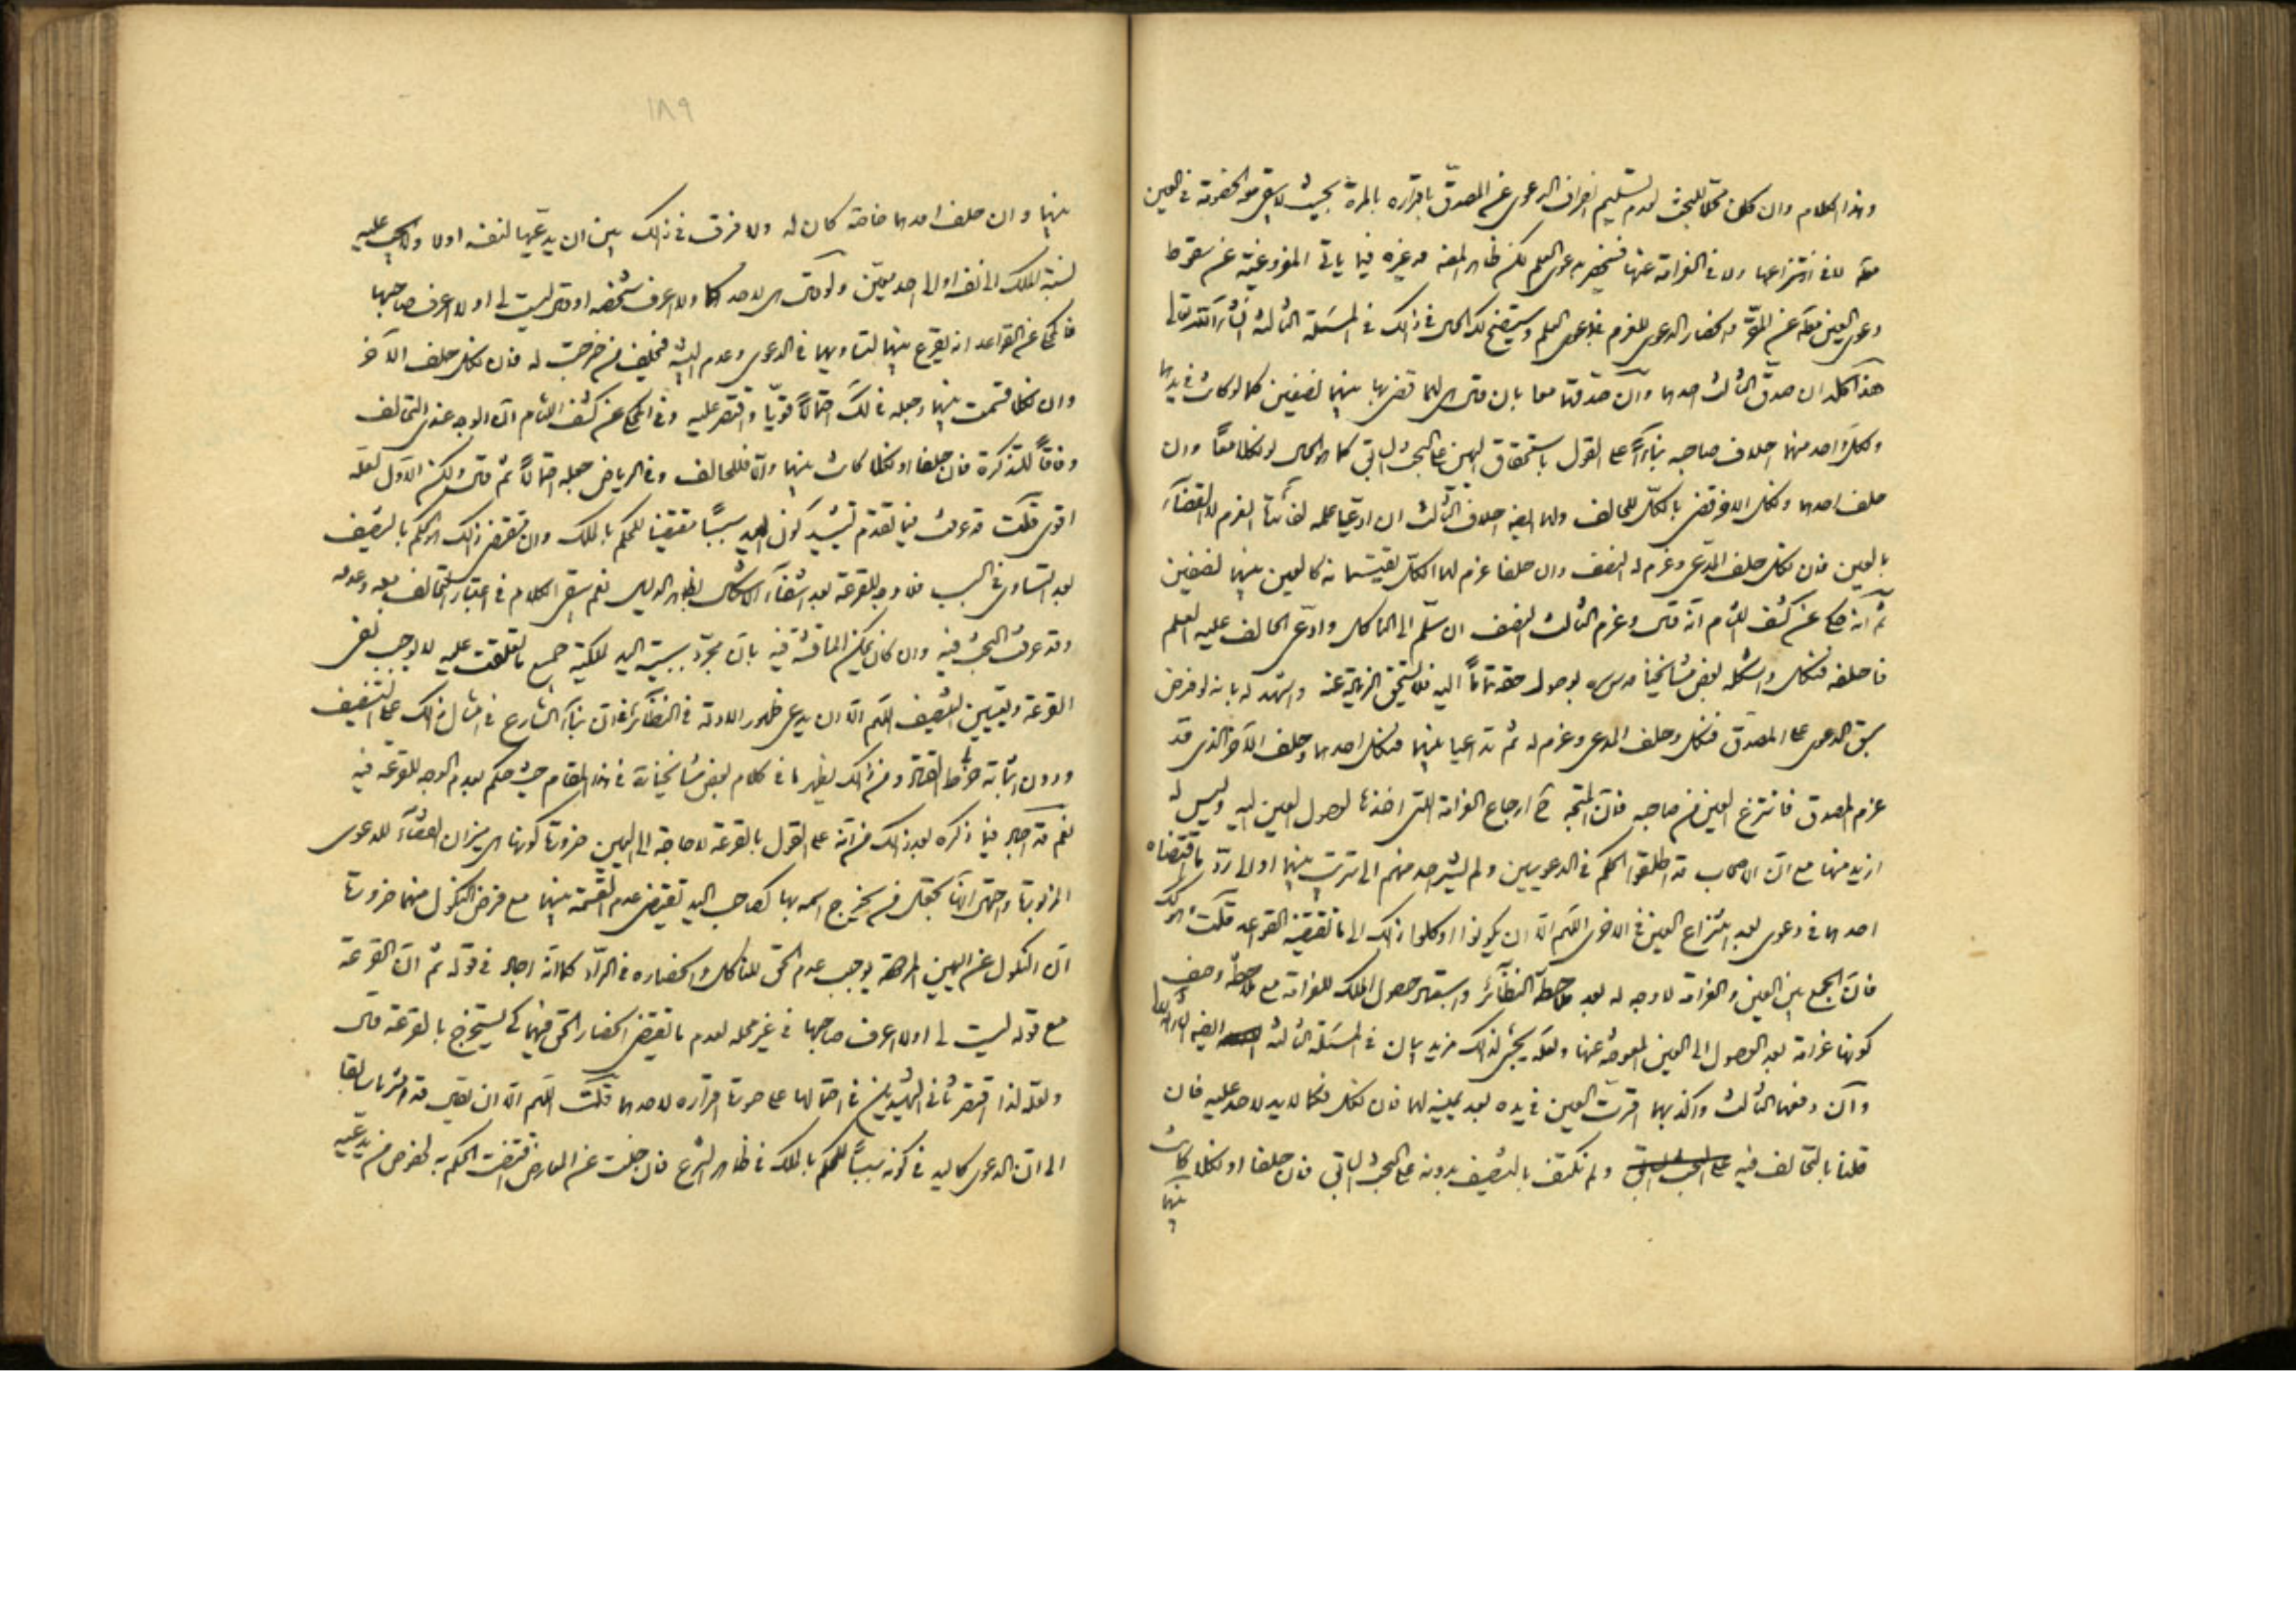 وهذا الكلام وان كان محلا للبحث لعدم تسليم انصراف الدعوى عن المصدق باقراره بالمرة بحيث لا يبقى معه الخصومة في العين
معه لا في انتزاعها ولا في الغرامة عنها فينحصر بدعوى العلم لكن ظاهر وغيره فيما ياتي المفروغية عن سقوط
دعوى العين معه عن المقر وانحصار الدعوى للغرم بدعوى العلم وسيتضح لك الحال في ذلك في المسئلة الثالثة انشاء الله تعالى
هذا كله ان صدق الثالث احدهما وان صدقهما معا بان قال هي لهما قضى بها بينهما نصفين كما لو كانت في يديهما
ولكل واحد منهما احلاف صاحبه بناء على القول باستحقاق اليمين على البحث السابق كما هو الحال لو نكلا معا وان
حلف احدهما ونكل الاخر قضى بالكل للحالف ولهما ايضا احلاف الثالث ان ادعيا علمه لفائدة الغرم لا القضاء
بالعين فان نكل حلف المدعى وغرم له النصف وان حلفا غرم لهما الكل يقتسمانه كالعين بينهما نصفين
ثم انه حكى عن كشف اللثام انه قال وغرم الثالث النصف ان سلم الى الناكل وادعى الحالف عليه العلم
فاحلفه فنكل واشكله بعض مشايخنا قدس سره بوصول حقه تاما اليه فلا يستحق الزيادة عنه واستشهد له بانه لو فرض
سبق الدعوى على المصدق فنكل وحلف المدعى وغرم له ثم تداعيا بينهما فنكل احدهما وحلف الاخر الذى قد
غرم المصدق فانتزع العين من صاحبه فان المتجه ح ارجاع الغرامة التى اخذها لوصول العين اليه وليس له
ازيد منها مع ان الاصحاب قد اطلقوا الحكم في الدعويين ولم يشر احد منهم الى ترتب بينهما او الى رد ما اقتضاه
احدهما في دعوى بعد انتزاع العين في الاخرى اللهم الا ان يكونوا اوكلوا ذلك الى ما تقتضيه القواعد قلت وهو كذلك
فان الجمع بين العين والغرامة لا وجه له بعد ملاحظة النظائر واستبعاد حصول الملك للغرامة مع ملاحظة وصف
كونها غرامة بعد الوصول الى العين المعوضة عنها ولعله يجىء لذلك مزيد بيان في المسئلة الثالثة ايضا انشاء الله
وان دفعهما الثالث واكذبهما اقرت العين في يده بعد يمينه لهما فان نكل فكما لا يد لاحد عليه فان
قلنا بالتحالف فيه على البحث السابق ولم نكتف بالتنصيف بدونه على البحث السابق فان حلفا او نكلا كانت
بينهما
١٨٩
بينهما وان حلف احدهما خاصة كان له ولا فرق في ذلك بين ان يدعيها لنفسه اولا ولا يجب عليه
نسبة الملك الى نفسه او الى احد معين ولو قال هى لاحدكما ولا اعرف شخصه او قال ليست لى او لا اعرف صاحبها
فالمحكى عن القواعد انه يقرع بينهما لتساويهما في الدعوى وعدم البينة فيحلف من خرجت له فان نكل حلف الاخر
وان نكلا قسمت بينهما وجعله في لك احتمالا قويا واقتصر عليه وفي المحكى عن كشف اللثام ان الوجه عندى التحالف
وفاقا للتذكرة فان حلفا او نكلا كانت بينهما والا فللحالف وفي الرياض جعله احتمالا ثم قال ولكن الاول لعله
اقوى قلت قد عرفت فيما تقدم تشييد كون اليد سببا مقتضيا للحكم بالملك وان مقتضى ذلك هو الحكم بالتنصيف
بعد التساوى في السبب فلا وجه للقرعة بعد انتفاء الاشكال بظهر الدليل نعم يبقى الكلام في اعتبار التحالف معه وعدمه
وقد عرفت البحث فيه وان كان يمكن المناقشة فيه بان مجرد سببية اليد لملكية جميع ما تعلقت عليه لا يوجب نفى
القرعة وتعيين التنصيف اللهم الا ان يدعى ظهور الادلة في النظائر في ان بناء الشارع في امثال ذلك على التنصيف
ودون اثباته خرط القتاد ومن ذلك يظهر ما في كلام بعض مشايخنا في هذا المقام حيث حكم بعدم الوجه للقرعة فيه
نعم قد اجاد فيما ذكره بعد ذلك من انه على القول بالقرعة لا حاجة الى اليمين ضرورة كونها هى ميزان القضاء للدعوى
المزبورة واحتمال انها تجعل من يخرج اسمه بها كصاحب اليد تقتضى عدم القسمة بينهما مع فرض النكول منهما ضرورة
ان النكول عن اليمين المردودة يوجب عدم الحق للناكل وانحصاره في الراد كما انه اجاد في قوله ثم ان القرعة
مع قوله ليست لى او لا اعرف صاحبها في غير محله لعدم ما يقتضى انحصار الحق فيهما كى يستخرج بالقرعة قال
ولعله لذا اقتصر ثانى الشهيدين في احتمالها على صورة اقراره لاحدهما قلت اللهم الا ان يقال قد اشرنا سابقا
الى ان الدعوى كاليد في كونه سببا للحكم بالملك في ظاهر الشرع فان خلت عن المعارض اقتضت الحكم به لخصوص من يدعيه